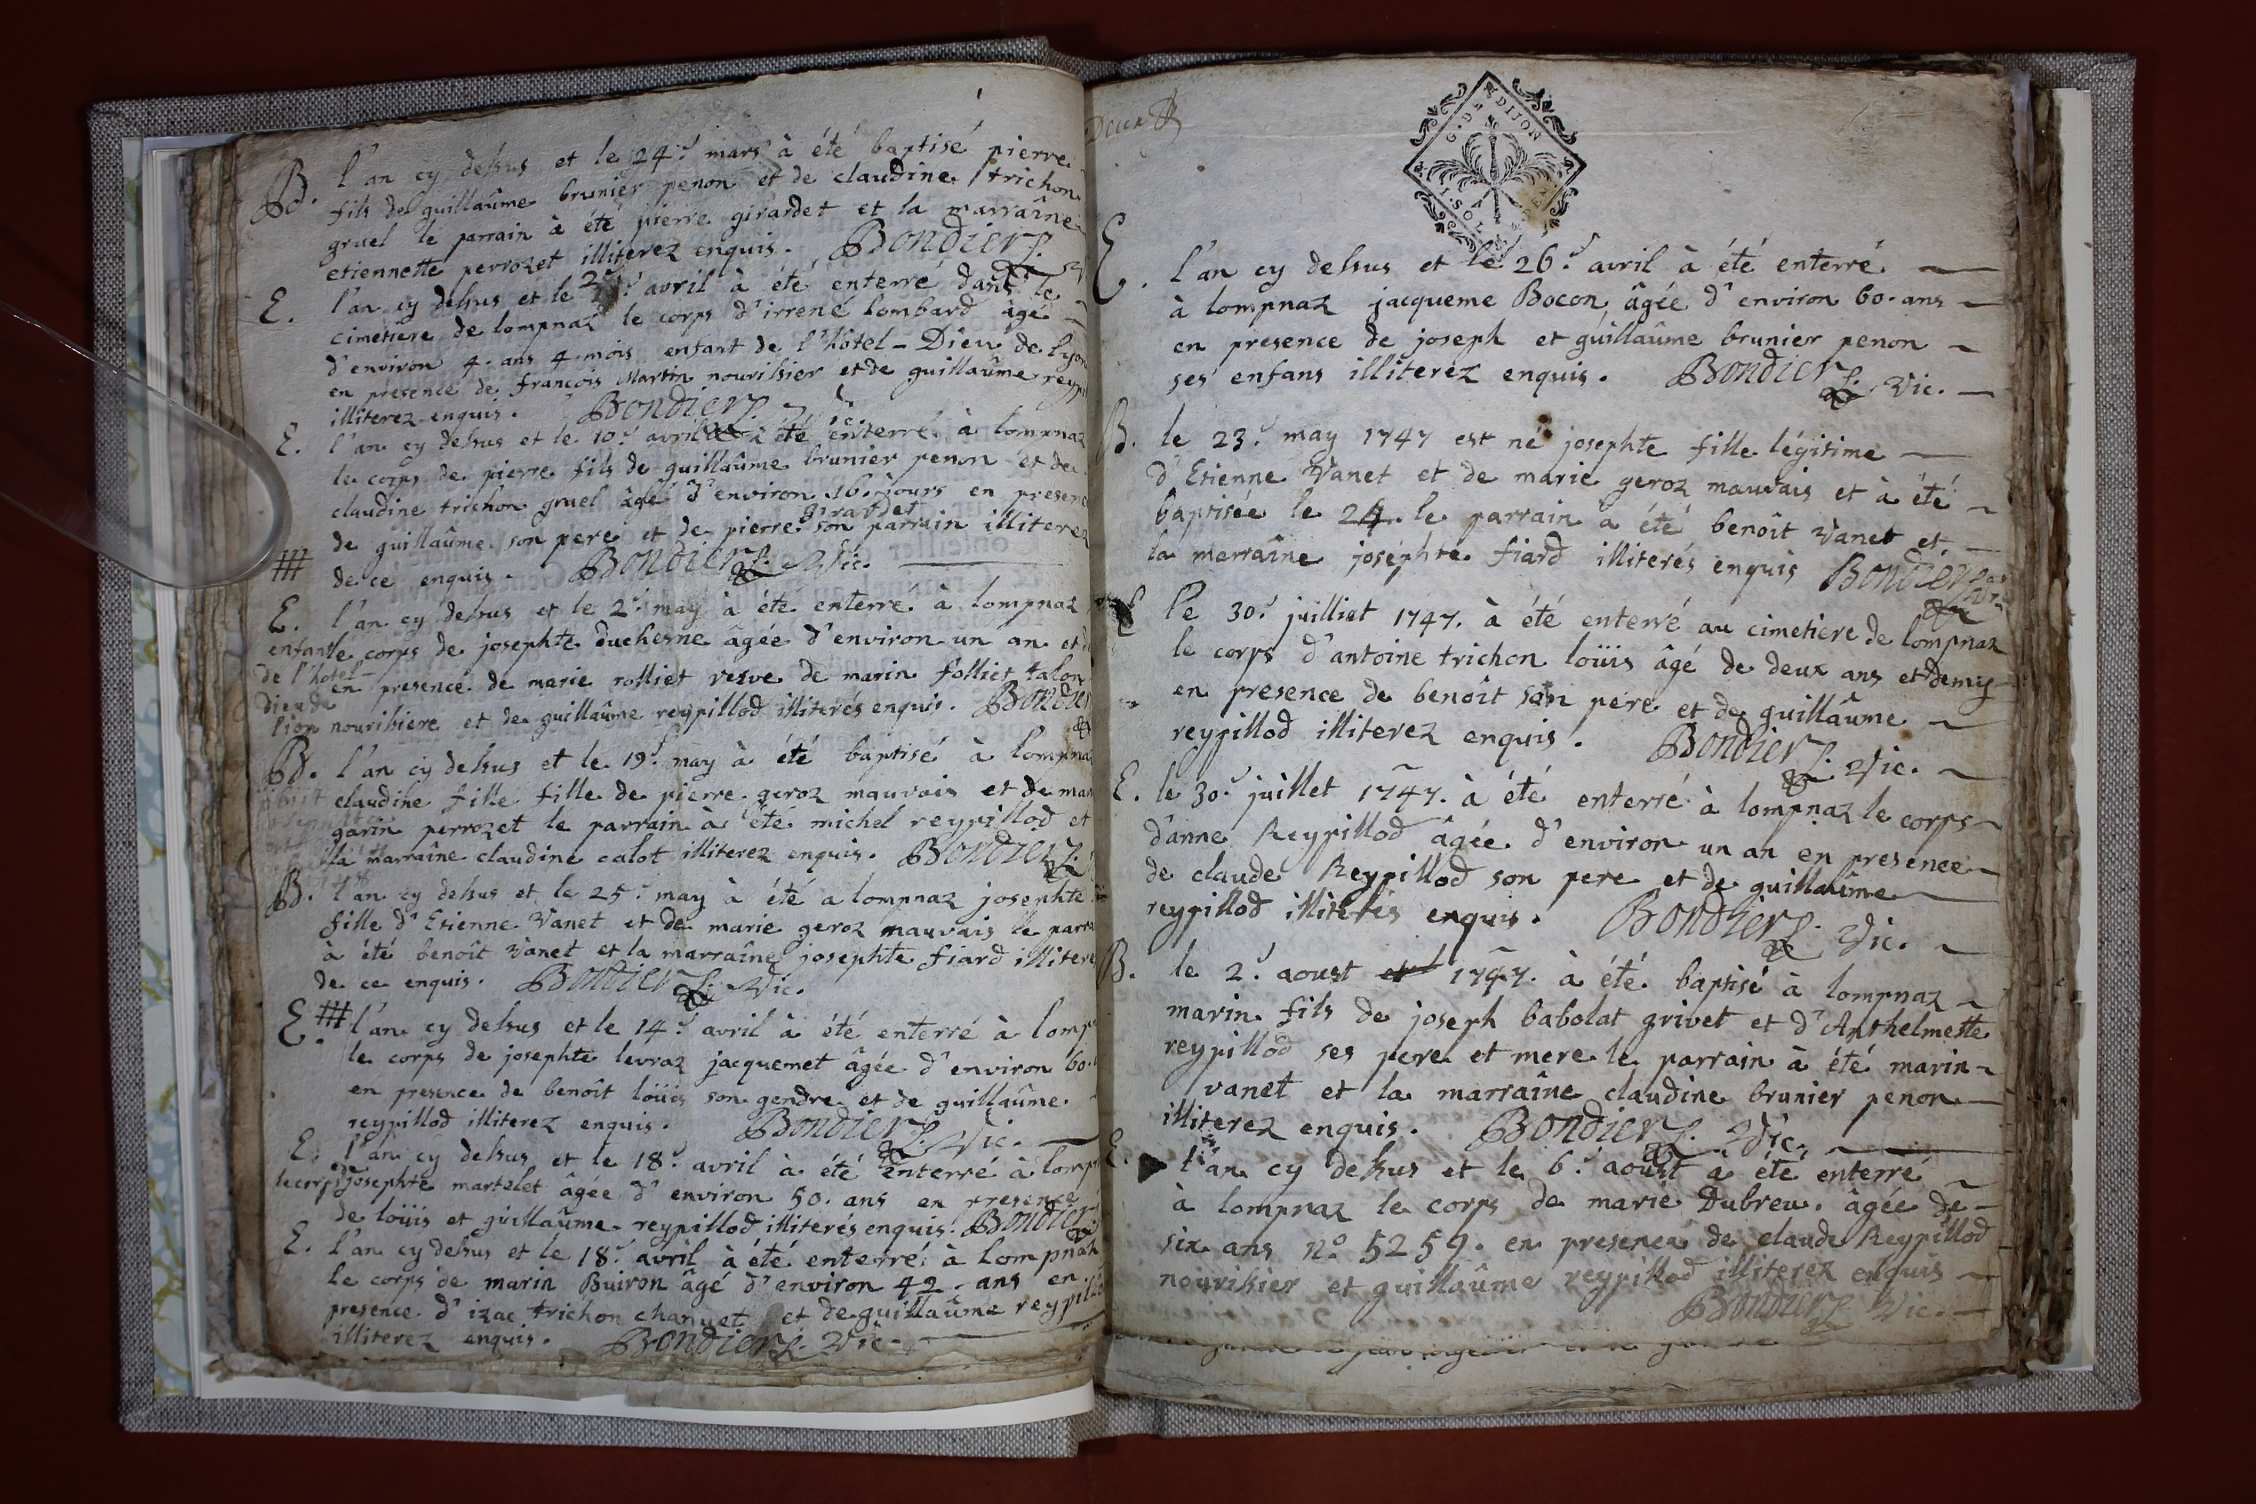 B. l'an cy dessus et le 24.e mars à été baptisé pierre
fils de guillaûme brunier penon et de claudine trichon
gruel le parrain à été pierre girardet et la marraîne
etiennette perrozet illiterez enquis. Bondier P.
E. l'an cy dessus et le avril à été enterré dans le
cimetiere de lompnaz le corps d'irrené lombard âgé
d'environ 4. ans 4 mois enfant de l'hôtel-Dieu de lyon
en presence de françois Martin nourissier et de guillaûme reypi
illiterez enquis. Bondier P.
E. l'an cy dessus et le 10.e avril à été enterré à lompnaz
le corps de pierre fils de guillaûme brunier penon et de
claudine trichon gruel âgé d'environ 16. jours en presen
girardet
de guillaûme son pere et de pierre son parrain illiterez
# de ce enquis. Bondier P. Vic.
E. l'an cy dessus et le 2.e may à été enterré à lompnaz
enfant le corps de josephte duchesne âgée d'environ un an et d
de l'hotel
en presence de marie rolliet vesve de marin folliet talon
dieu de
lion nourissiere et de guillaûme reypillod illiterés enquis. Bondier
B. l'an cy dessus et le 19.e may à été baptisé à lompnaz
claudine fille fille de pierre geroz mauvais et de mar
garin perrozet le parrain à été michel reypillod et
la marraîne claudine calot illiterez enquis. Bondier P.
B. l'an cy dessus et le 25.e may à été a lompnaz josephte
fille d'Etienne Vanet et de marie geroz mauvais le parra
à été benoît Vanet et la marraîne josephte fiard illitere
de ce enquis. Bondier P. Vic.
E. # l'an cy dessus et le 14.e avril à été enterré à lomp
le corps de josephte levraz jacquemet âgée d'environ 60.
en presence de benoît loüis son gendre et de guillaûme
reypillod illiterez enquis. Bondier P. Vic.
E. l'an cy dessus et le 18.e avril à été enterré à lomp
le corps josephte martelet âgée d'environ 50. ans en presence
de loüis et guillaûme reypillod illiterés enquis. Bondier
E. l'an cy dessus et le 18.e avril à été enterré à lompnaz
le corps de marin Buiron âgé d'environ 42 ans en
presence d'izac trichon chanuet et de guillaûme reypill
illiterez enquis. Bondier P. Vic.
Deux
G. D. DIJON
E. l'an cy dessus et le 26.e avril à été enterré
à lompnaz jacqueme Bocon âgée d'environ 60. ans
en presence de joseph et guillaûme brunier penon
ses enfans illiterez enquis. Bondier P. Vic.
B. le 23.e may 1747 est né josephte fille légitime
d'Etienne Vanet et de marie geroz mauvais et à été
baptisée le 24. le parrain à été benoît Vanet et
la marraîne josephte fiard illiterés enquis Bondier
E le 30.e juilliet 1747. à été enterré au cimetiere de lompnaz
le corps d'antoine trichon loüis âgé de deux ans et demy
en presence de benoît son pere et de guillaûme
reypillod illiterez enquis. Bondier P. Vic.
E. le 30.e juillet 1747. à été enterré à lompnaz le corps
d'anne Reypillod âgée d'environ un an en presence
de claude Reypillod son pere et de guillaûme
reypillod illiterés enquis. Bondier P. Vic.
B. le 2.e aoust et 1747. à été baptisé à lompnaz
marin fils de joseph babolat grivet et d'Anthelmette
reypillod ses pere et mere le parrain à été marin
vanet et la marraîne claudine brunier penon
illiterez enquis. Bondier P. Vic.
E. l'an cy dessus et le 6.e aoust à été enterré
à lompnaz le corps de marie Dubreu. âgée de
six ans n.o 5259. en presence de claude Reypillod
nourissier et guillaûme reypillod illiterez enquis
Bondier P. Vic.